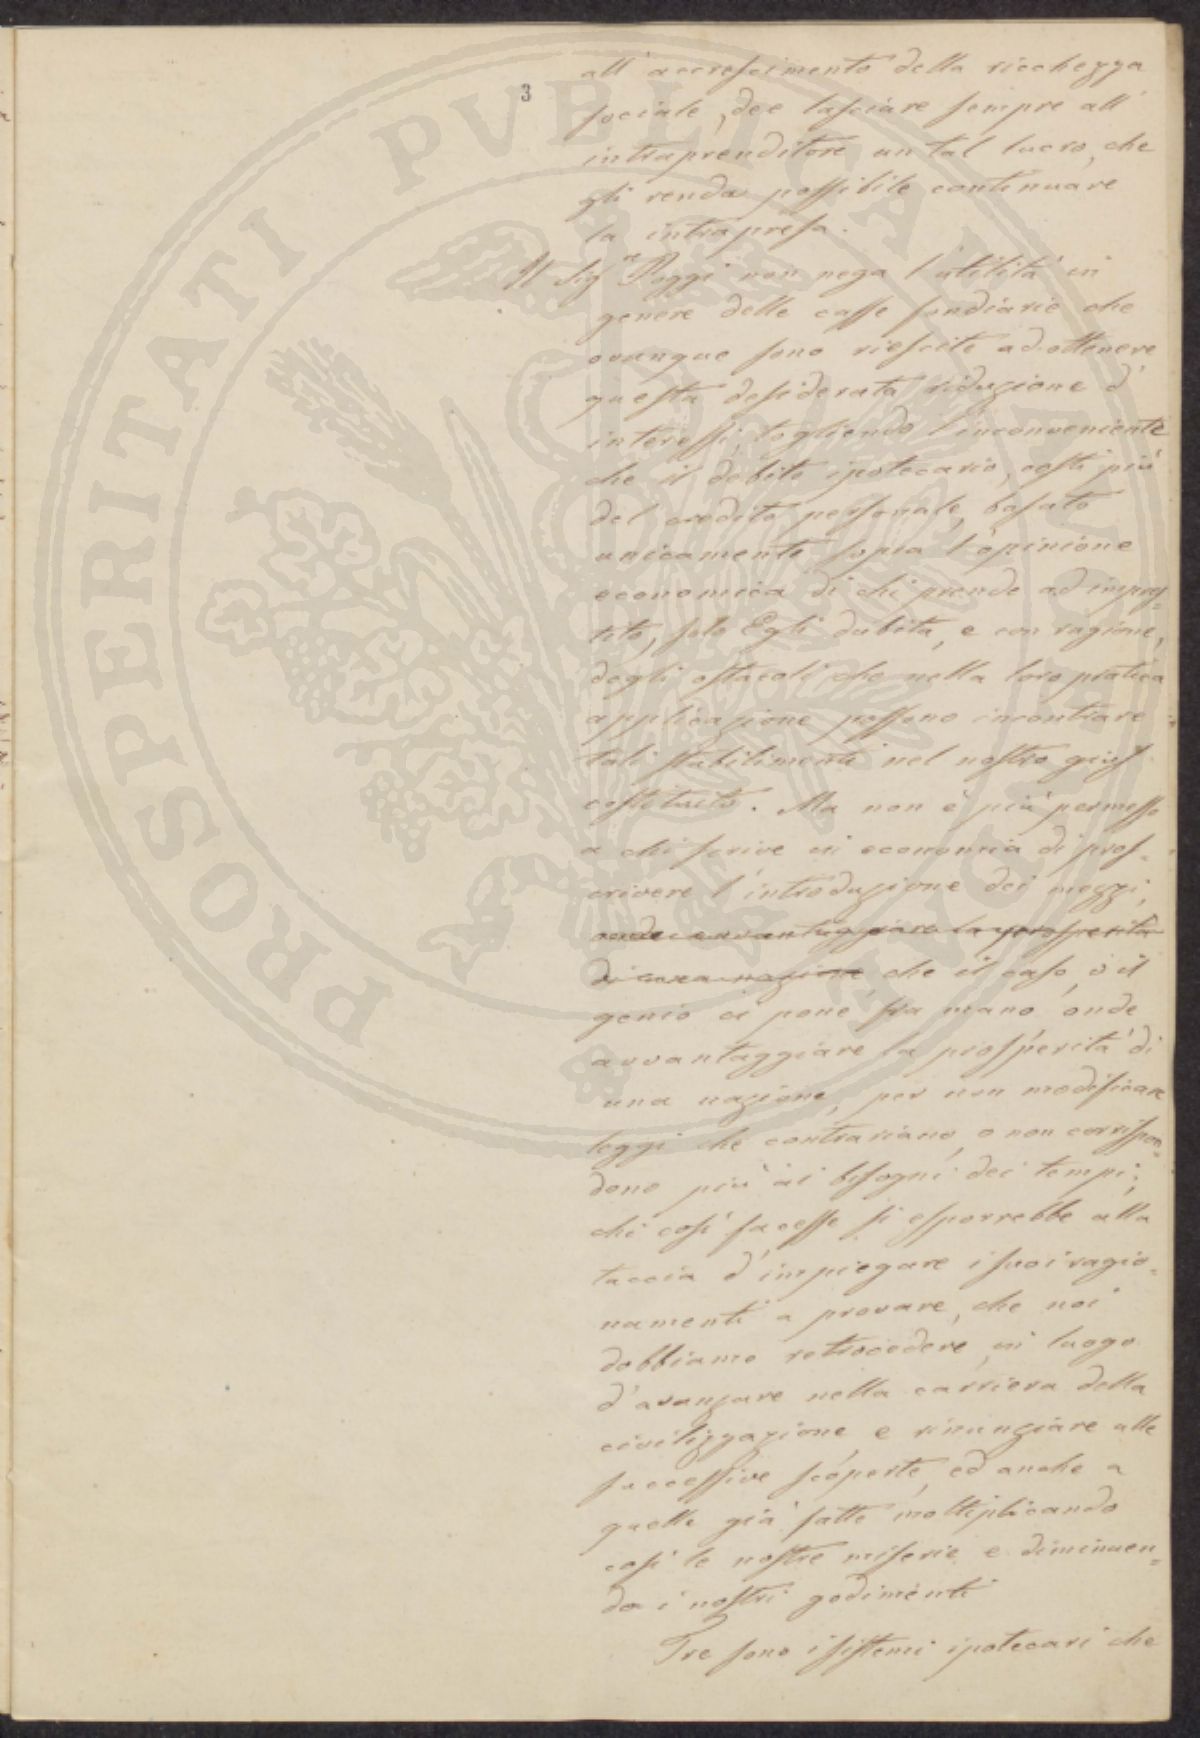 3
all'accrescimento della ricchezza
sociale, dee lasciare sempre all'
intraprenditore un tal lucro, che
gli renda possibile continuare
la intrapresa.
Il Sig.re Poggi non nega l'utilità in
genere delle casse fondiarie che
ovunque sono riescite ad ottenere
questa desiderata riduzione d'
interessi, togliendo l'inconveniente
che il debito ipotecario, costi più
del credito personale, basato
unicamente sopra l'opinione
economica di chi prende ad impres=
tito, solo Egli dubita, e con ragione,
degli ostacoli che nella loro pratica
applicazione possono incontrare
tali stabilimenti nel nostro gius
costituito. Ma non è più permesso
a chi scrive in economia di pros=
crivere l'introduzione dei mezzi,
onde avvantaggiare la prosperità
di una nazione che il caso, o il
genio ci pone fra mano onde
avvantaggiare la prosperità di
una nazione, per non modificare
leggi che contrariano, o non corrispon=
dono più ai bisogni dei tempi;
chi così facesse si esporrebbe alla
taccia d'impiegare i suoi ragio=
namenti a provare, che noi
dobbiamo retrocedere in luogo
d'avanzare nella carriera della
civilizzazione, e rinunziare alle
successive scoperte, ed anche a
quelle già fatte moltiplicando
così le nostre miserie e diminuen=
do i nostri godimenti
Tre sono i sistemi ipotecari che
PROSPERITATI PVBLICAE AVGENDAE